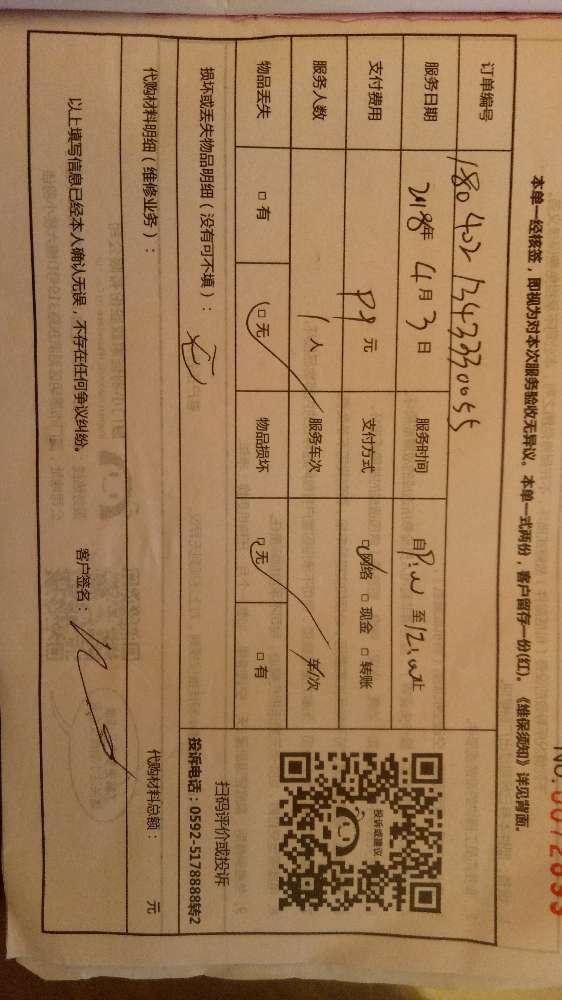 NO.0072655
本单一经核签,即视为对本次服务验收无异议。本单一式两份,客户留存一份(红)。《维保须知》详见背面。
订单编号 180402134333005S
服务日期 2018年 4月 3日 服务时间 自 至 止
支付费用 元 支付方式 ☑网络 □现金 □转账
服务人数 1人 服务车次 车/次
物品丢失 □有 ☑无 物品损坏 ☑无 □有
损坏或丢失物品明细(没有可不填): 无
代购材料明细(维修业务): 代购材料总额: 元
以上填写信息已经本人确认无误,不存在任何争议纠纷。 客户签名:
投诉或建议
扫码评价或投诉
投诉电话:0592-5178888转2